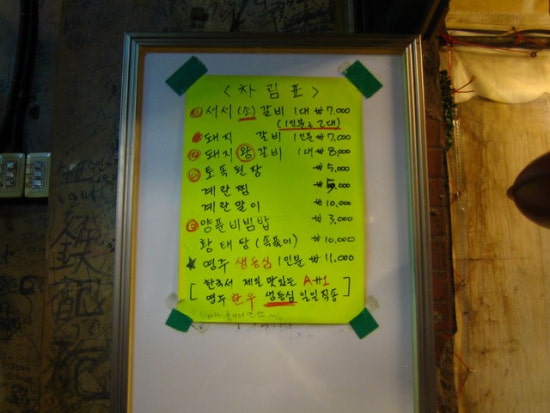 < 차 림 표 >
서서 (소) 갈비 1대 ₩7,000
(1인분은 2대)
돼지 갈비 1인분 ₩7,000
돼지 (왕) 갈비 1대 ₩8,000
토속된장 ₩5,000
계란찜 ₩5,000
계란말이 ₩10,000
양푼비빔밥 ₩3,000
황태탕 ₩10,000
★ 영주 생등심 1인분 ₩11,000
[ 한국서 제일 맛있는 A#1
영주 한우 생등심 일일직송 ]